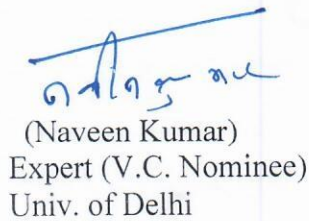 नवीन कुमार
(Naveen Kumar)
Expert (V.C. Nominee)
Univ. of Delhi